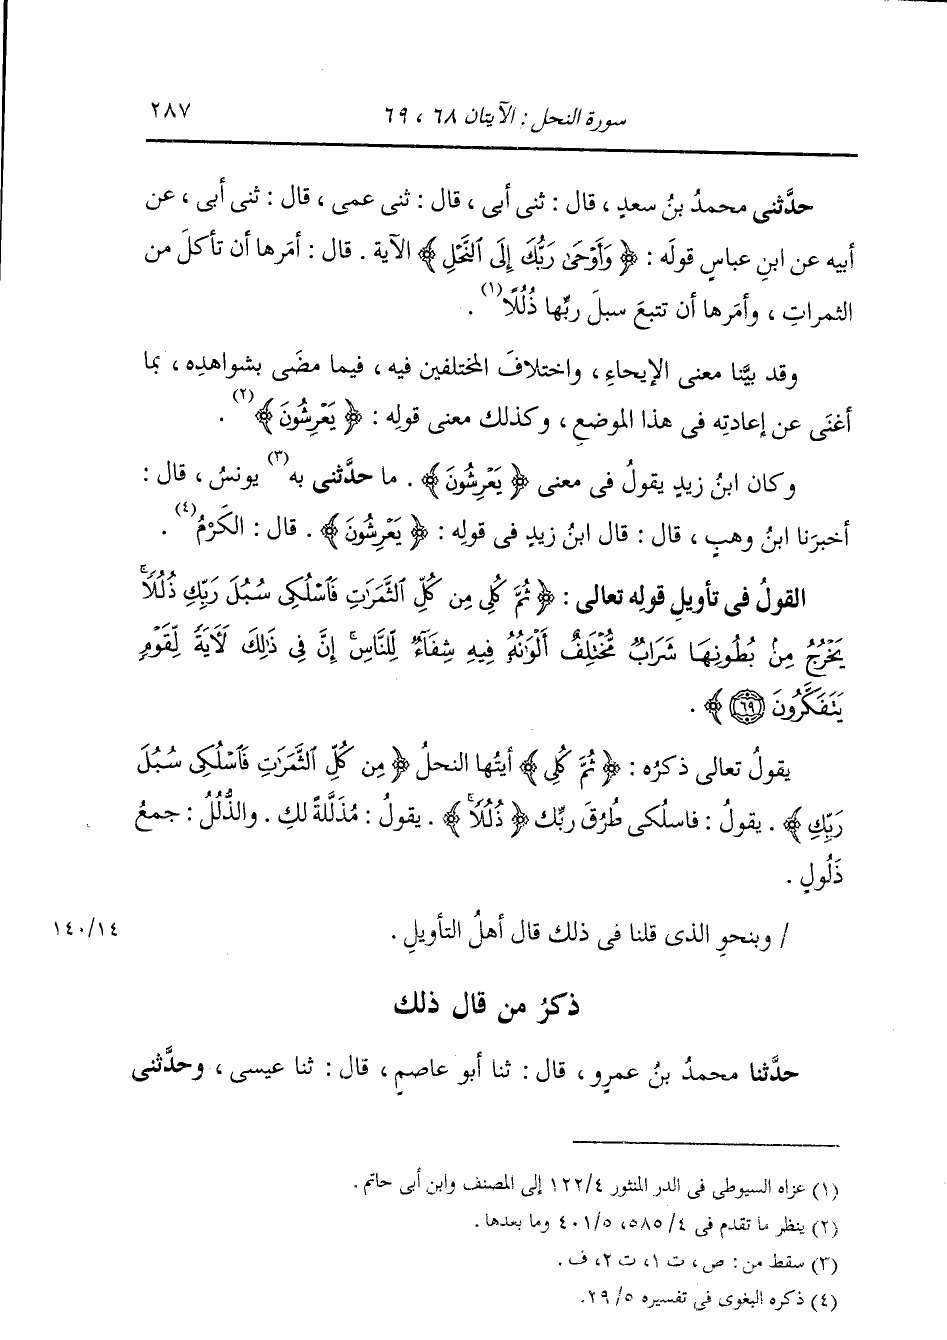 سورة النحل : الآيتان ٦٨ ، ٦٩
٢٨٧
حدَّثنى محمدُ بنُ سعدٍ ، قال : ثنى أبى ، قال : ثنى عمى ، قال : ثنى أبى ، عن
أبيه عن ابنِ عباسٍ قولَه : ﴿ وَأَوْحَىٰ رَبُّكَ إِلَى ٱلنَّحْلِ ﴾ الآية . قال : أمَرها أن تأكلَ من
الثمراتِ ، وأمَرها أن تتبعَ سبلَ ربِّها ذُلُلًا(١) .
وقد بيَّنا معنى الإيحاءِ ، واختلافَ المختلفين فيه ، فيما مضَى بشواهدِه ، بما
أغنَى عن إعادتِه فى هذا الموضعِ ، وكذلك معنى قولِه : ﴿ يَعْرِشُونَ ﴾(٢) .
وكان ابنُ زيدٍ يقولُ فى معنى ﴿ يَعْرِشُونَ ﴾ . ما حدَّثنى به(٣) يونسُ ، قال :
أخبرَنا ابنُ وهبٍ ، قال : قال ابنُ زيدٍ فى قولِه : ﴿ يَعْرِشُونَ ﴾ . قال : الكَرْمُ(٤) .
القولُ فى تأويلِ قولِه تعالى : ﴿ ثُمَّ كُلِى مِن كُلِّ ٱلثَّمَرَٰتِ فَٱسْلُكِى سُبُلَ رَبِّكِ ذُلُلًاۚ
يَخْرُجُ مِنۢ بُطُونِهَا شَرَابٌ مُّخْتَلِفٌ أَلْوَٰنُهُۥ فِيهِ شِفَآءٌ لِّلنَّاسِۚ إِنَّ فِى ذَٰلِكَ لَآيَةً لِّقَوْمٍ
يَتَفَكَّرُونَ ٦٩ ﴾ .
يقولُ تعالى ذكرُه : ﴿ ثُمَّ كُلِى ﴾ أيتُها النحلُ ﴿ مِن كُلِّ ٱلثَّمَرَٰتِ فَٱسْلُكِى سُبُلَ
رَبِّكِ ﴾ . يقولُ : فاسلُكى طُرُقَ ربِّك ﴿ ذُلُلًاۚ ﴾ . يقولُ : مُذَلَّلةً لكِ . والذُّلُلُ : جمعُ
ذَلُولٍ .
/ وبنحوِ الذى قلنا فى ذلك قال أهلُ التأويلِ .
١٤٠/١٤
ذكرُ من قال ذلك
حدَّثنا محمدُ بنُ عمرٍو ، قال : ثنا أبو عاصمٍ ، قال : ثنا عيسى ، وحدَّثنى
(١) عزاه السيوطى فى الدر المنثور ١٢٢/٤ إلى المصنف وابن أبى حاتم .
(٢) ينظر ما تقدم فى ٥٨٥/٤، ٤٠١/٥ وما بعدها .
(٣) سقط من : ص ، ت ١، ت ٢، ف .
(٤) ذكره البغوى فى تفسيره ٢٩/٥.